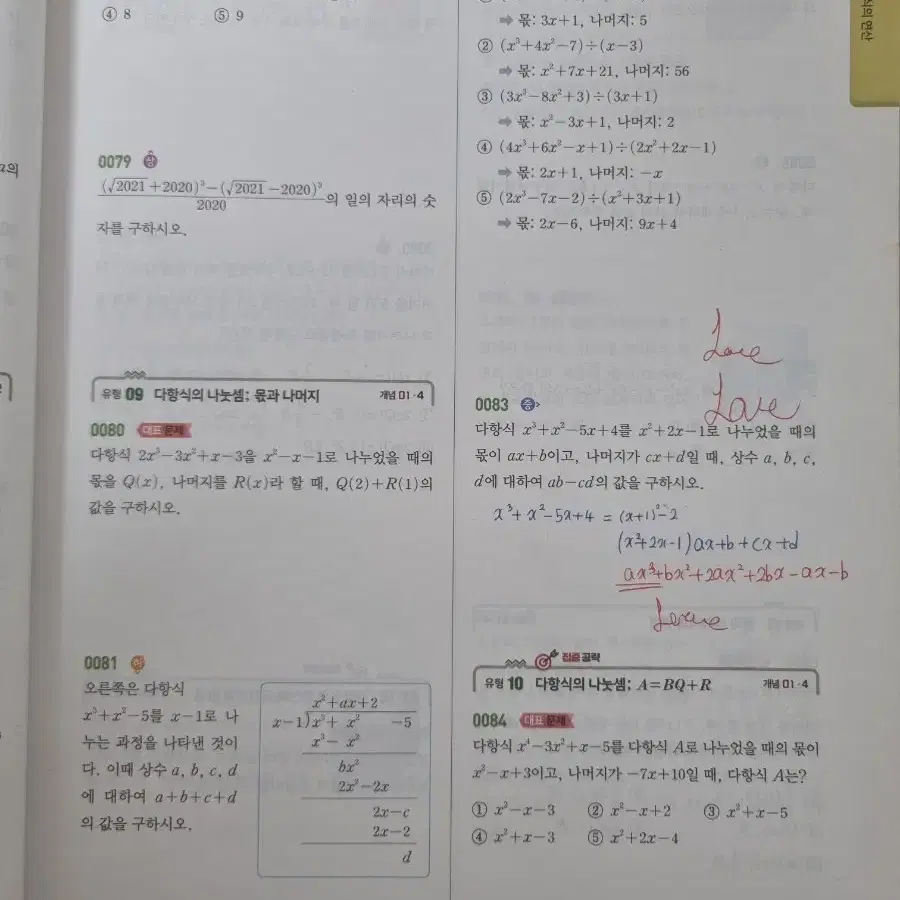 ④ 8 ⑤ 9
0079 상
(√2021+2020)³-(√2021-2020)³ / 2020 의 일의 자리의 숫
자를 구하시오.
유형 09 다항식의 나눗셈; 몫과 나머지 개념 01-4
0080 대표 문제
다항식 2x³-3x²+x-3을 x²-x-1로 나누었을 때의
몫을 Q(x), 나머지를 R(x)라 할 때, Q(2)+R(1)의
값을 구하시오.
0081 하
오른쪽은 다항식
x³+x²-5를 x-1로 나
누는 과정을 나타낸 것이
다. 이때 상수 a, b, c, d
에 대하여 a+b+c+d
의 값을 구하시오.
x²+ax+2
x-1)x³+ x² -5
x³- x²
bx²
2x²-2x
2x-c
2x-2
d
➡ 몫: 3x+1, 나머지: 5
② (x³+4x²-7)÷(x-3)
➡ 몫: x²+7x+21, 나머지: 56
③ (3x³-8x²+3)÷(3x+1)
➡ 몫: x²-3x+1, 나머지: 2
④ (4x³+6x²-x+1)÷(2x²+2x-1)
➡ 몫: 2x+1, 나머지: -x
⑤ (2x³-7x-2)÷(x²+3x+1)
➡ 몫: 2x-6, 나머지: 9x+4
Love
Love
0083 중
다항식 x³+x²-5x+4를 x²+2x-1로 나누었을 때의
몫이 ax+b이고, 나머지가 cx+d일 때, 상수 a, b, c,
d에 대하여 ab-cd의 값을 구하시오.
x³+x²-5x+4 = (x+1)²-2
(x²+2x-1)ax+b+cx+d
ax³+bx²+2ax²+2bx-ax-b
집중 공략
유형 10 다항식의 나눗셈; A=BQ+R 개념 01-4
0084 대표 문제
다항식 x⁴-3x²+x-5를 다항식 A로 나누었을 때의 몫이
x²-x+3이고, 나머지가 -7x+10일 때, 다항식 A는?
① x²-x-3 ② x²-x+2 ③ x²+x-5
④ x²+x-3 ⑤ x²+2x-4